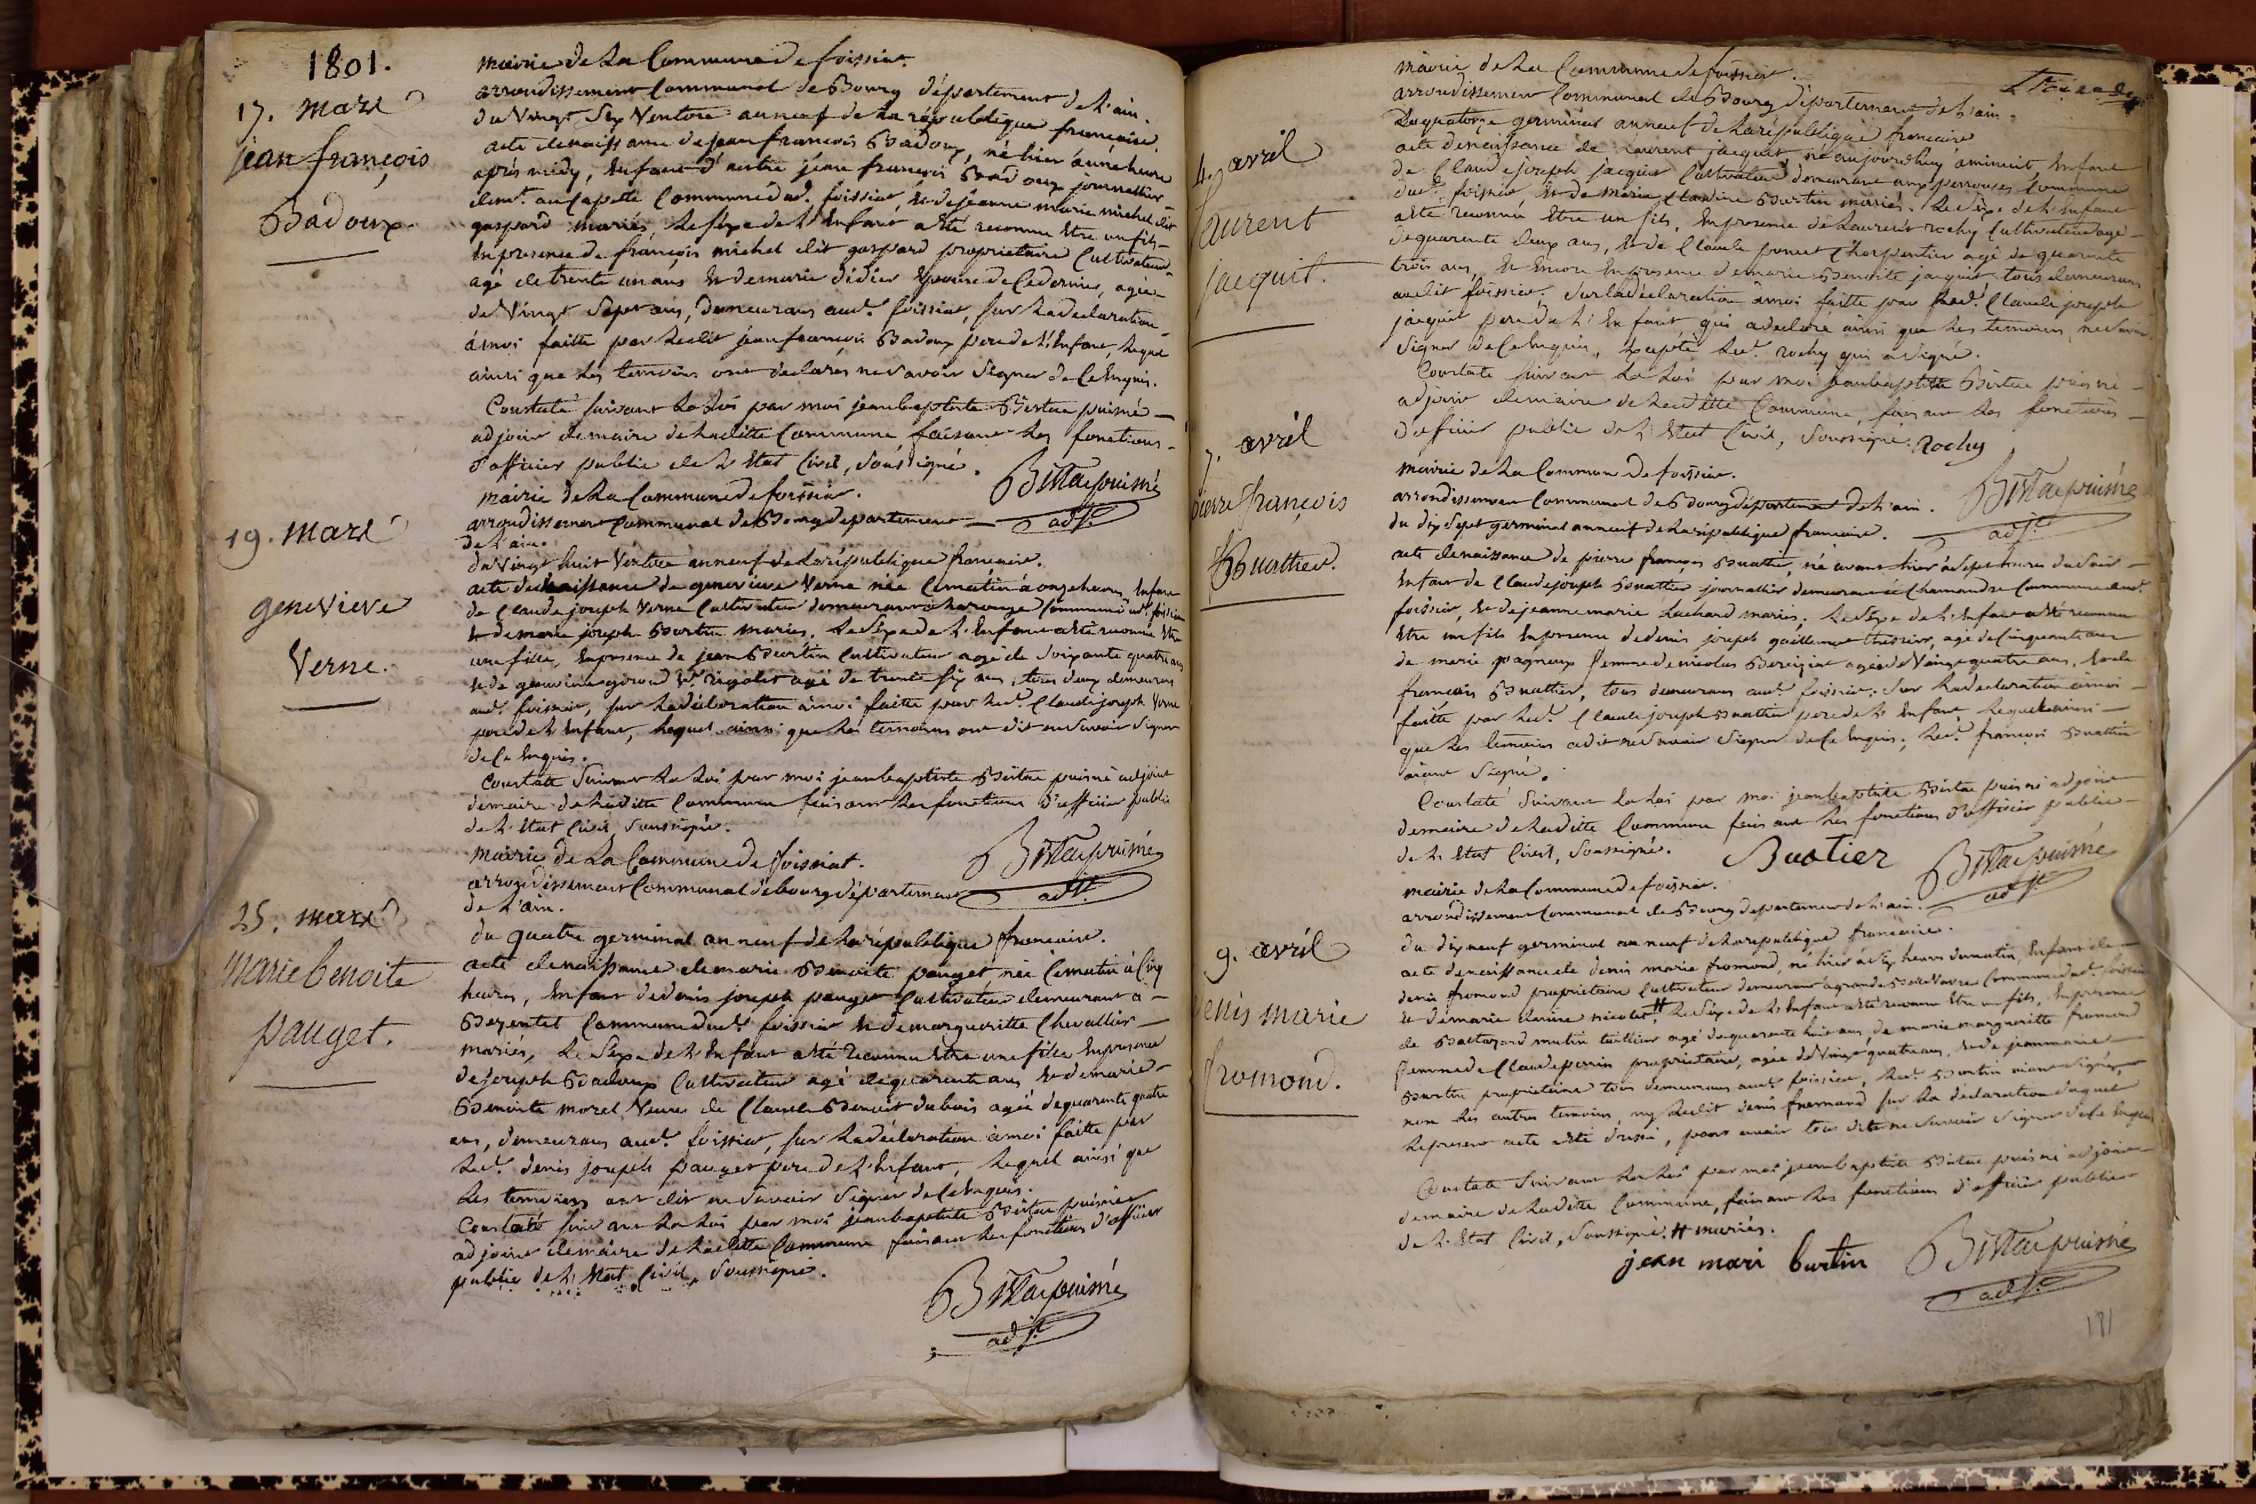 1801.
17. mars
jean françois
Badoux.
mairie de la Commune de foissiat.
arrondissement Communal de Bourg département de l'ain.
du Vingt Six Ventose an neuf de la république francaise.
acte de naissance de jean francois Badoux, né hier à une heure
après midy, Enfant d'autre jean francois Badoux journallier
demt. au Capete Commune dud. foissiat, & de jeanne marie michel dit
gaspard mariés, Le sexe de l'Enfant a Eté reconnu Etre un fils -
En presence de françois michel dit gaspard propriétaire Cultivateur
agé de trente un ans & de marie didier Epouse de Ce dernier, agée
de Vingt Sept ans, Demeurans aud. foissiat, sur La declaration
à moi faitte par Ledit jean francois Badoux pere de l'Enfant, Lequel
ainsi que Les temoins ont declarés ne savoir Signer de Ce Enquis.
Constaté suivant La Loi par moi jean baptiste Bistue puisné -
adjoint de maire de Laditte Commune faisant Les fonctions -
d'officier public de l'Etat Civil, Soussigné.
Bistue puisné
adjt.
19. mars
genevieve
Verne.
mairie de La Commune de foissiat.
arrondissement Communal de Bourg departement -
de l'ain.
du Vingt huit Ventose an neuf de La république francaise.
acte de naissance de genevieve Verne née Ce matin à onze heures, Enfant
de Claude joseph Verne Cultivateur demeurant à La rouge Commune dud. foissiat
& de marie joseph Burtin mariés. Le Sexe de l'Enfant a Eté reconnu Etre
une fille, En presence de jean Burtin Cultivateur agé de Soixante quatre ans
& de genevieve giroud Ve. rigolet agé de trente six ans, tous deux demeurans
aud. foissiat, sur La déclaration à moi faitte par Led. Claude joseph Verne
pere de l'Enfant, Lequel ainsi que Les temoins ont dit ne Savoir Signer
de Ce Enquis.
Constaté Suivant La Loi par moi jean baptiste Bistue puisné adjoint
de maire de Laditte Commune faisant Les fonctions d'officier public
de l'Etat Civil, Soussigné.
Bistue puisné
adjt.
25. mars
Marie benoite
pauget.
mairie de La Commune de foissiat.
arrondissement Communal de bourg département
de l'ain.
du quatre germinal an neuf de La république francaise.
acte de naissance de marie Benoite pauget née Ce matin à Cinq
heures, Enfant de denis joseph pauget Cultivateur demeurant à -
Bezentet Commune dud. foissiat & de margueritte Chevallier -
mariés, Le Sexe de l'Enfant a Eté reconnu Etre une fille En presence
de joseph Badoux Cultivateur agé de quarente ans & de marie -
Benoite morel Veuve de Claude Benoit dubois agée de quarente quatre
ans, demeurans aud. foissiat, sur La déclaration à moi faitte par
Led. denis joseph pauget pere de l'Enfant, Lequel ainsi que
Les temoins ont dit ne Savoir Signer de Ce Enquis.
Constaté suivant La Loi par moi jean baptiste Bistue puisné
adjoint de maire de Laditte Commune faisant Les fonctions d'officier
public de l'Etat Civil, Soussigné.
Bistue puisné
adjt.
4. avril
Laurent
jacquit.
mairie de La Commune de foissiat.
arrondissement Communal de Bourg département de l'ain.
Du quatorze germinal an neuf de La république francaise
acte de naissance de Laurent jacquit né aujourdhuy à minuit, Enfant
de Claude joseph jacquit Cultivateur demeurant aux perrouses Commune
dud. foissiat & de marie Claudine Burtin mariés. Le Sexe de l'Enfant
a Eté reconnu Etre un fils, En presence de Laurent rochy Cultivateur agé -
de quarente deux ans, & de Claude poncet Charpentier agé de quarente
trois ans, & Encore En presence de marie Benoite jacquit tous demeurans
audit foissiat; Sur La déclaration à moi faitte par Led. Claude joseph
jacquit pere de l'Enfant, qui a declaré ainsi que Les temoins ne Savoir
Signer de Ce Enquis, Excepté Led. rochy qui a Signé.
Constaté suivant La Loi par moi jean baptiste Bistue puisné -
adjoint de maire de Laditte Commune, faisant Les fonctions -
d'officier public de l'Etat Civil, Soussigné.
Rochy
Bistue puisné
adjt.
7. avril
pierre françois
Buathier.
mairie de La Commune de foissiat.
arrondissement Communal de Bourg département de l'ain.
du dix Sept germinal an neuf de La république francaise.
acte de naissance de pierre françois Buathier, né avant hier à Sept heures du Soir -
Enfant de Claude joseph Buathier journallier demeurant à Chamandre Commune dud.
foissiat, & de jeanne marie Lachard mariés; Le Sexe de l'Enfant a Eté reconnu
Etre un fils En presence de denis joseph guillemot agé de Cinquante ans
de marie pagneux femme de nicolas Bereiziat agée de Vingt quatre ans, & de
francois Buathier, tous demeurans aud. foissiat; Sur La declaration à moi -
faitte par Led. Claude joseph Buathier pere de l'Enfant, Lequel ainsi -
que Les temoins a dit ne Savoir Signer de Ce Enquis; Led. françois Buathier
aiant Signé.
Constaté Suivant La Loi par moi jean baptiste Bistue puisné adjoint
de maire de Laditte Commune faisant Les fonctions d'officier public -
de l'Etat Civil, Soussigné.
Buatier
Bistue puisné
adjt.
9. avril
Denis marie
fromond.
mairie de La Commune de foissiat.
arrondissement Communal de Bourg departement de l'ain.
du dix neuf germinal an neuf de La republique francaise.
acte de naissance de denis marie fromond, né hier à Six heures du matin, Enfant de -
denis fromond propriétaire Cultivateur demeurant à grande Commune dud. foissiat
& de marie nicolet # Le Sexe de l'Enfant a Eté reconnu Etre un fils, En presence
de Baltazard mutin tuillier agé de quarente huit ans, de marie margueritte fromond
femme de Claude perrin propriétaire, agée de Vingt quatre ans, & de jean marie
Burtin propriétaire tous demeurans aud. foissiat, Led. Burtin aiant Signé,
non Les autres temoins, ny Ledit denis fromond sur La déclaration duquel
Le present acte a Eté dressé, pour avoir tous dits ne Savoir Signer de Ce Enquis
Constaté Suivant La Loi par moi jean baptiste Bistue puisné adjoint -
de maire de Laditte Commune, faisant Les fonctions d'officier public -
de l'Etat Civil, Soussigné. # mariés.
jean mari burtin
Bistue puisné
adjt.
191